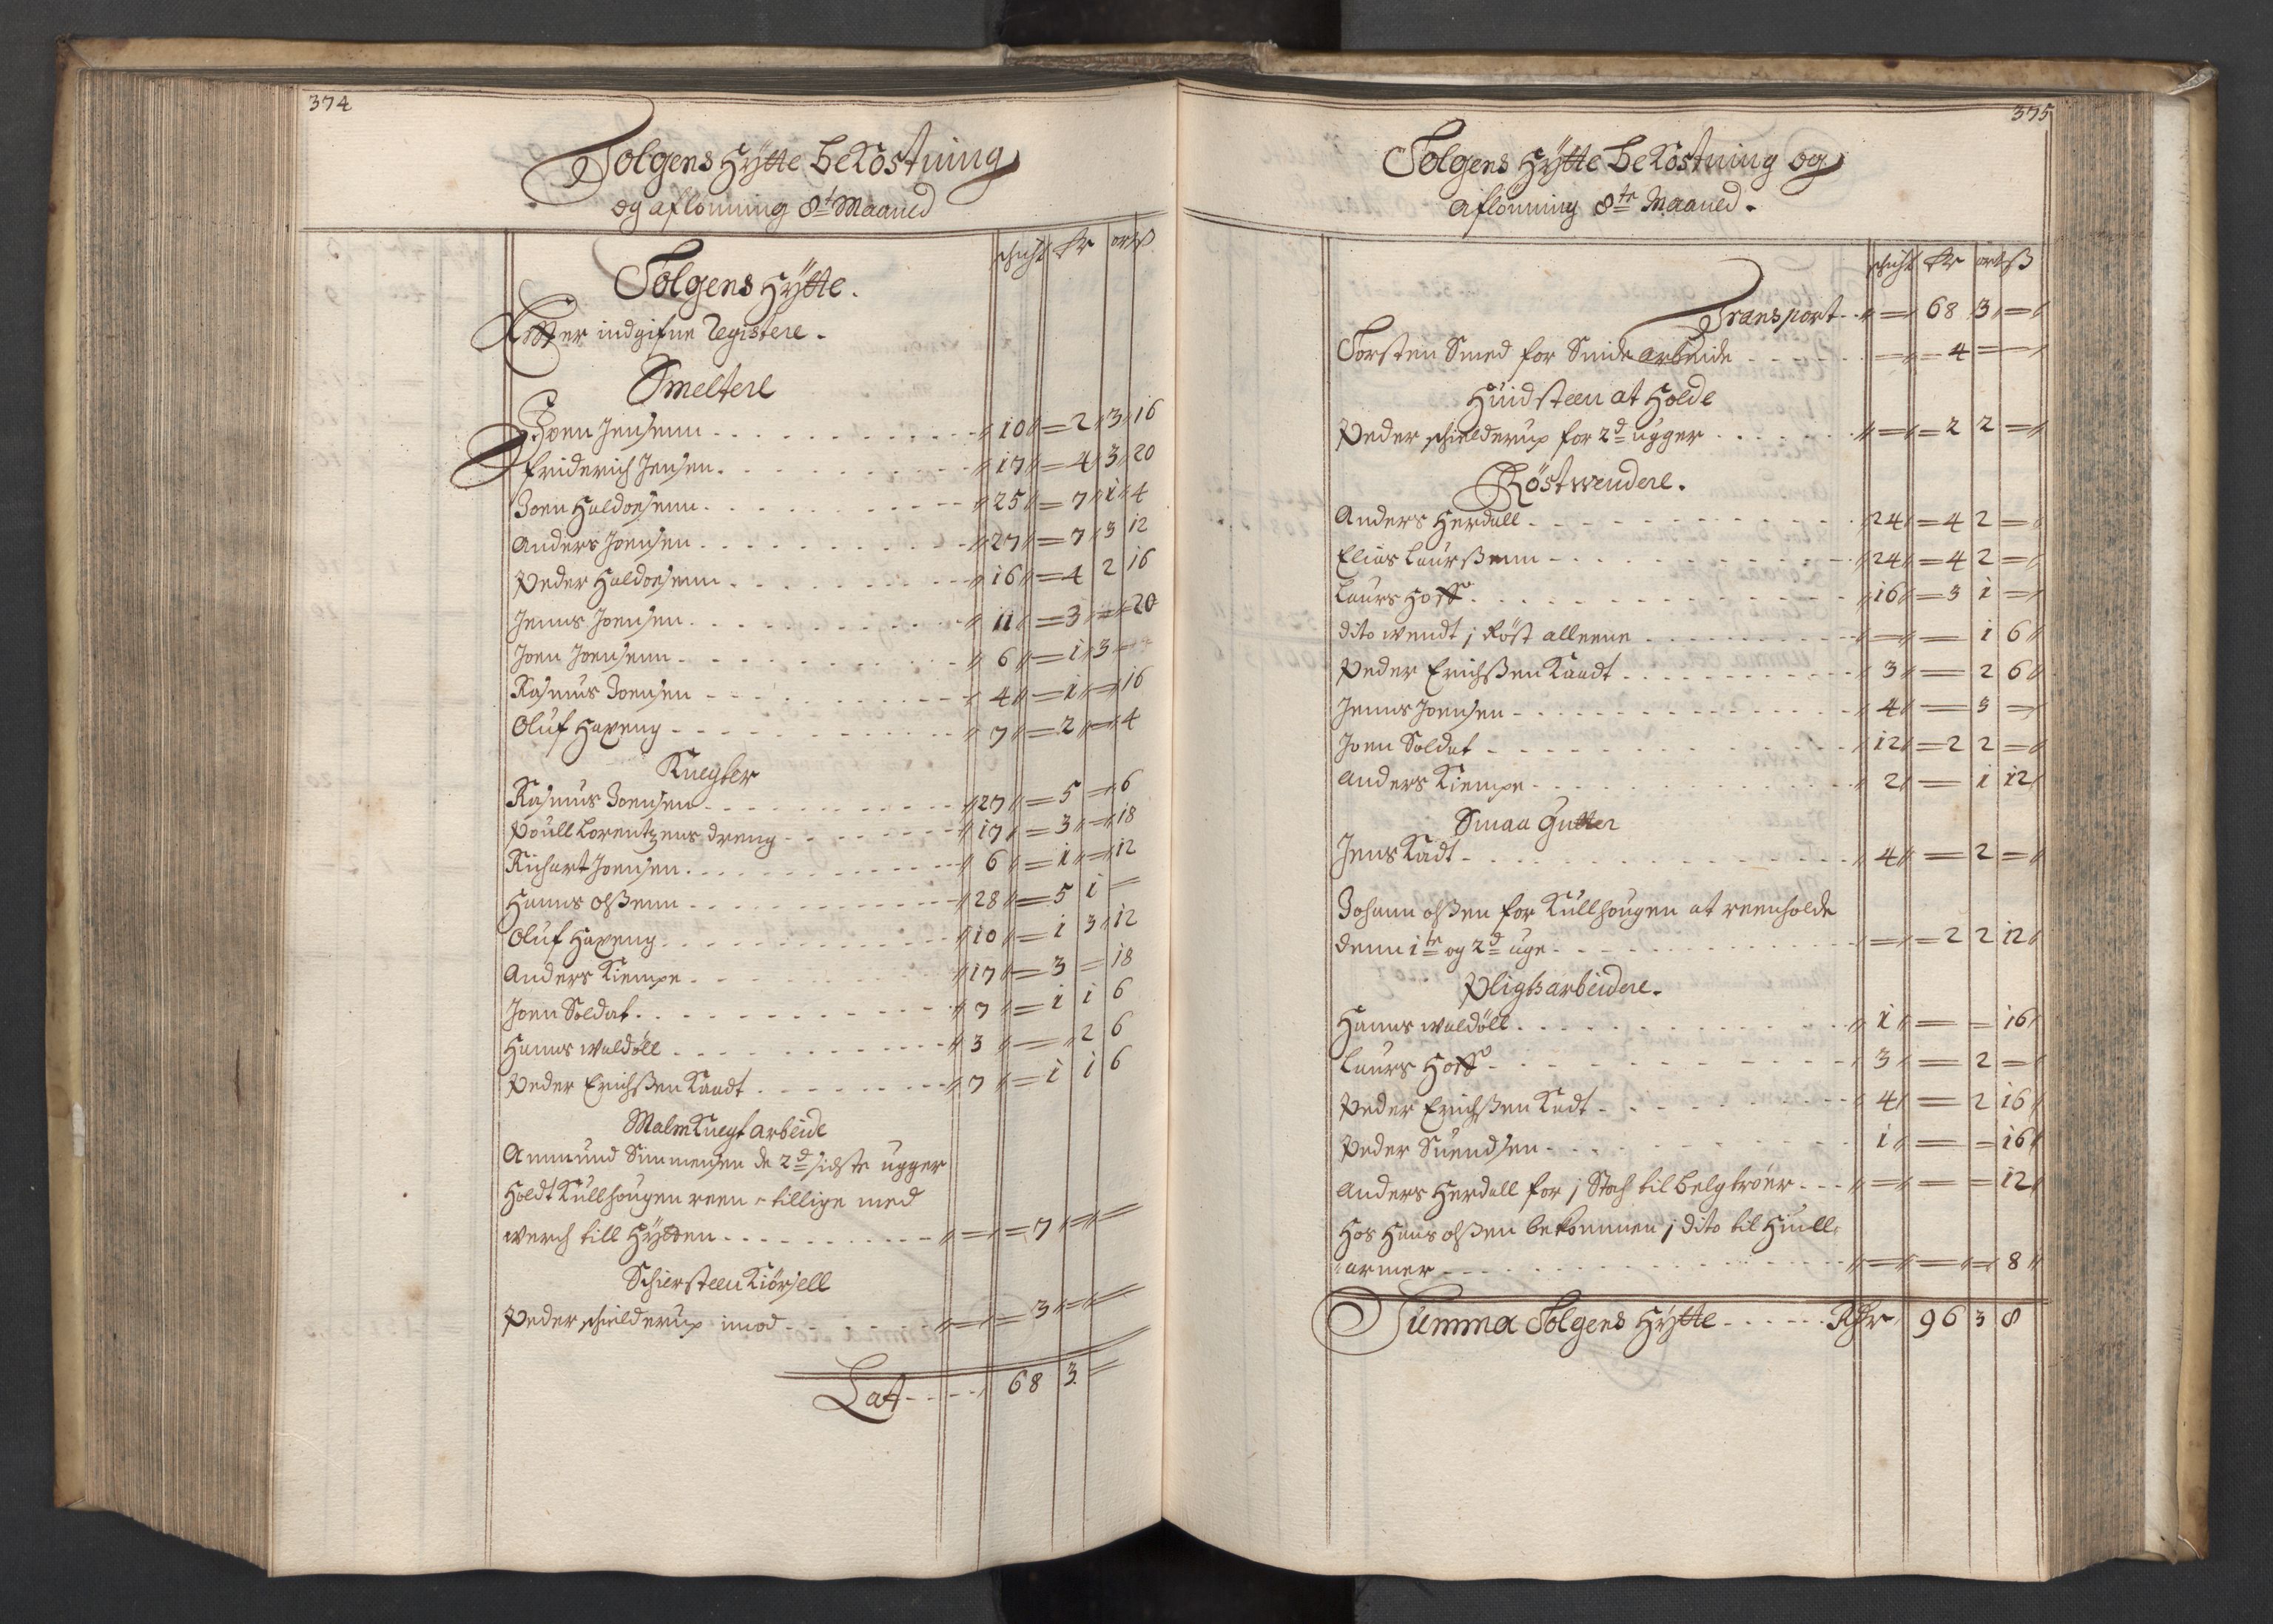 374
Tolgens Hÿtte bekostning
og aflønning 8t Maaned
schicht Rr ort ß
Tolgens Hÿtte.
Effter indgifne Registere.
Smeltere
Joen Jensenn 10 = 2 3 16
Friderich Jensen 17 = 4 3 20
Joen Haldorsenn 25 = 7 1 4
Anders Joensen 27 = 7 3 12
Peder Haldorsenn 16 = 4 2 16
Jenns Joensen 11 = 3 = 20
Joen Joensenn 6 = 1 3 =
Rasmus Joensen 4 = 1 = 16
Oluf Haveng 7 = 2 = 4
Knegter
Rasmus Joensen 27 = 5 = 6
Poull Lorentzens dreng 17 = 3 = 18
Richart Joensen 6 = 1 = 12
Hanns olßenn 28 = 5 1 =
Oluf Haveng 10 = 1 3 12
Anders Kiempe 17 = 3 = 18
Joen Soldat 7 = 1 1 6
Hanns waldøll 3 = 2 6
Peder Erichßen Kaadt 7 = 1 1 6
Malm Knegt arbeide
Ammund Simmensen de 2d sidste ugger
Holdt Kullhougen reen - tillige med
werch till Hÿtten = = 7 = =
Schiersteen Kiørsell
Peder schielderup imod = = 3 = =
Lat 68 3 =
375
Tolgens Hÿtte bekostning og
aflønning 8te Maaned.
schicht Rr ort ß
Transport = 68 3 =
Torsten Smed for Smide arbeide = = 4 = =
Huidsteen at Holde
Peder schielderup for 2d ugger = = 2 2 =
Røstwendere.
Anders Herdall 24 = 4 2 =
Elias Laurßenn 24 = 4 2 =
Laurs Hoff 16 = 3 1 =
dito wendt j Røst alleene = = 1 6
Peder Erichßen Kaadt 3 = 2 6
Jenns Joensen 4 = 3 =
Joen Soldat 12 = 2 2 =
Anders Kiempe 2 = 1 12
Smaa Gutter
Jens Kadt 4 = 2 =
Johann olßen for Kullhougen at reenholde
denn 1te og 2d uge = = 2 2 12
Pligtsarbeidere.
Hanns waldøll 1 = = 16
Laurs Hoff 3 = 2 =
Peder Erichßen Kadt 4 = 2 16
Peder Suendsen 1 = = 16
Anders Herdall for j Stoch til belgtrøer = = = 12
Hos Hans olßen bekommen j dito til Hiull-
armer = = = 8
Summa Tolgens Hÿtte Rdr 96 3 8